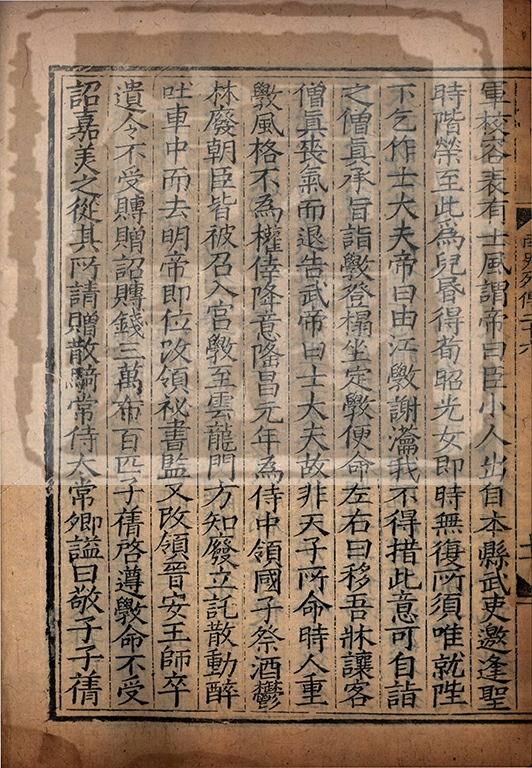 軍校容表有士風謂帝曰臣小人出自本縣武吏邀逢聖
時階榮至此為兒昬得荀昭光女即時無復所須唯就陛
下乞作士大夫帝曰由江斆謝瀹我不得措此意可自詣
之僧眞承旨詣斆登榻坐定斆便命左右曰移吾牀讓客
僧眞喪氣而退告武帝曰士大夫故非天子所命時人重
斆風格不為權倖降意隆昌元年為侍中領國子祭酒鬱
林廢朝臣皆被召入宮斆至雲龍門方知廢立託散動醉
吐車中而去明帝即位改領祕書監又改領晉安王師卒
遺令不受賻贈詔賻錢三萬布百匹子蒨啓遵斆命不受
詔嘉美之從其所請贈散騎常侍太常卿諡曰敬子子蒨